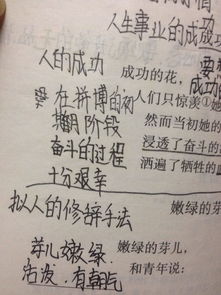 人生事业的成功
人的成功
成功的花，
成功
人们只惊羡①她
在拼博的初
期阶段
然而当初她的
奋斗的过程
浸透了奋斗的
十分艰幸
洒遍了牺牲的
拟人的修辞手法
芽儿嫩绿
嫩绿的芽儿，
活发．有朝气
和青年说：